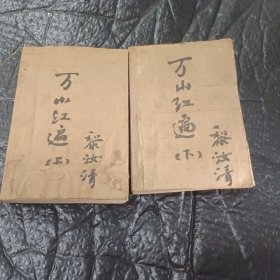 万山红遍
（上）
黎汝清
万山红遍
（下）
黎汝清